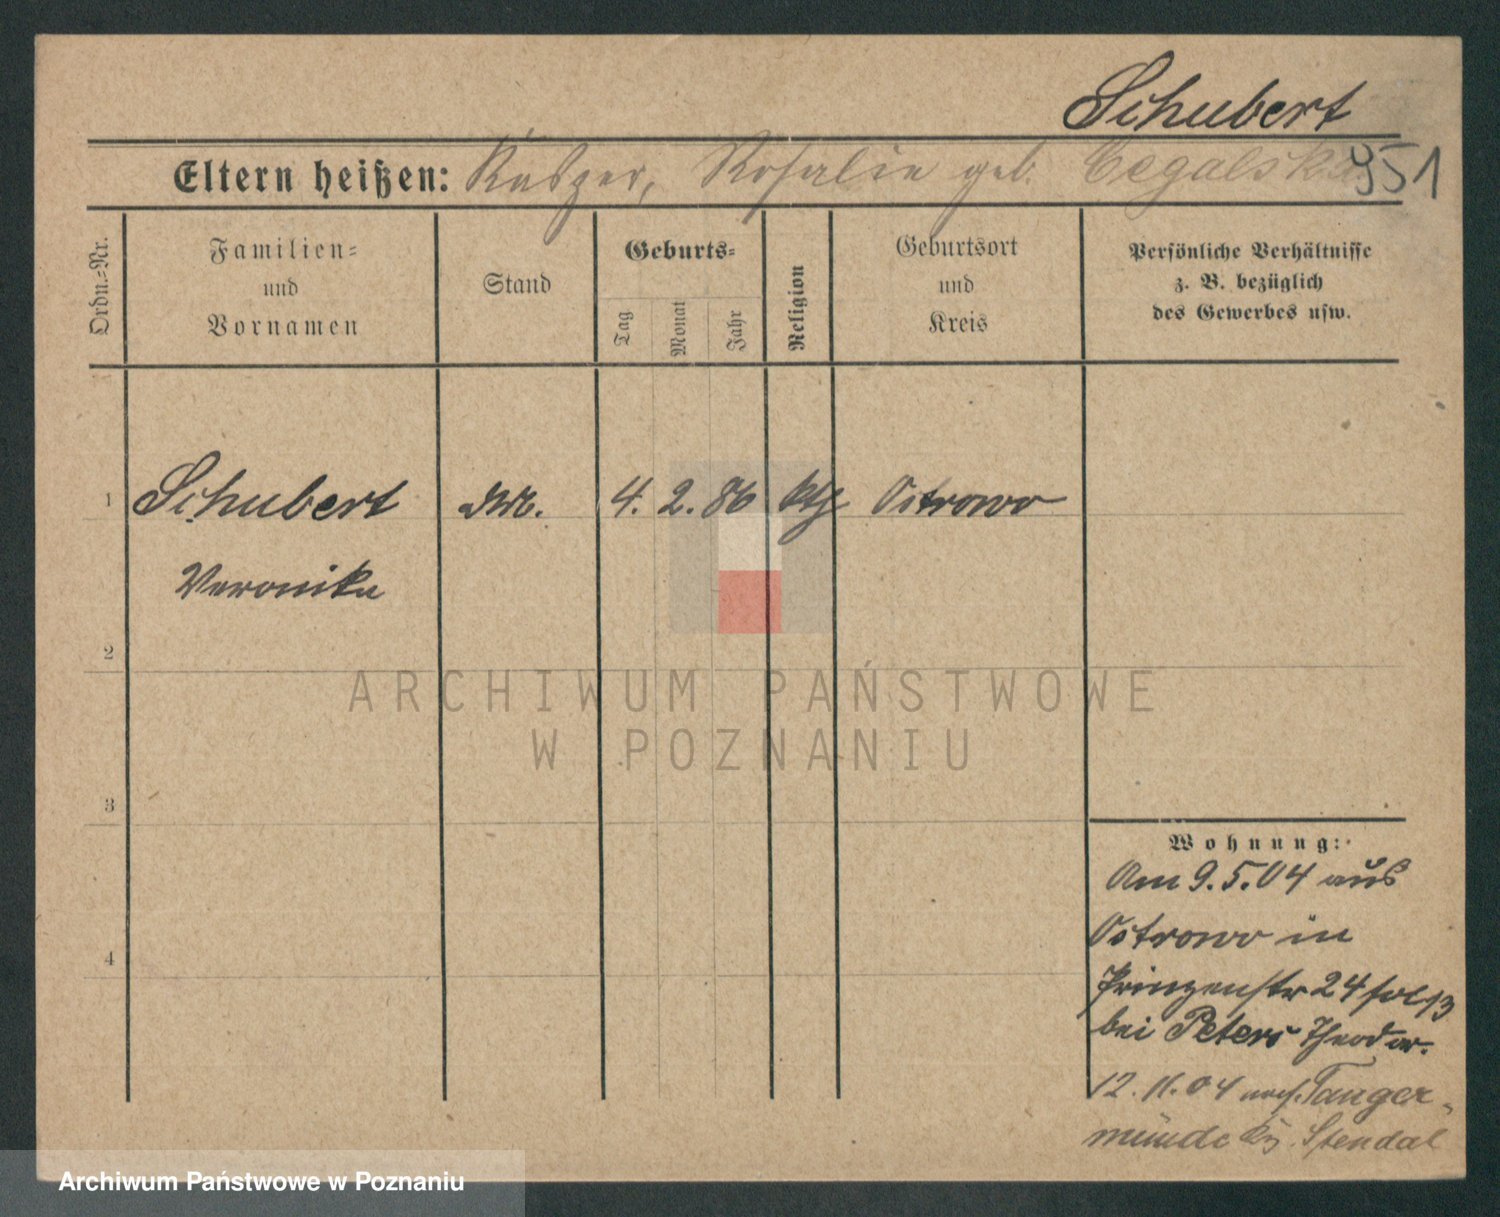 Schubert
951
Eltern heißen: Kasper, Rosalie geb. Cegalska
Ordn.=Nr.
Familien=
und
Vornamen
Stand
Geburts=
Tag
Monat
Jahr
Religion
Geburtsort
und
Kreis
Persönliche Verhältnisse
z. B. bezüglich
des Gewerbes usw.
1 Schubert 4. 2. 86 kth Ostrowo
Veronika
2
3
4
Wohnung:
Am 9.5.04 aus
Ostrowo in
Prinzenstr 24
bei Peters Theodor.
12.11.04 nach Tanger-
münde Kr. Stendal
ARCHIWUM PAŃSTWOWE
W POZNANIU
Archiwum Państwowe w Poznaniu